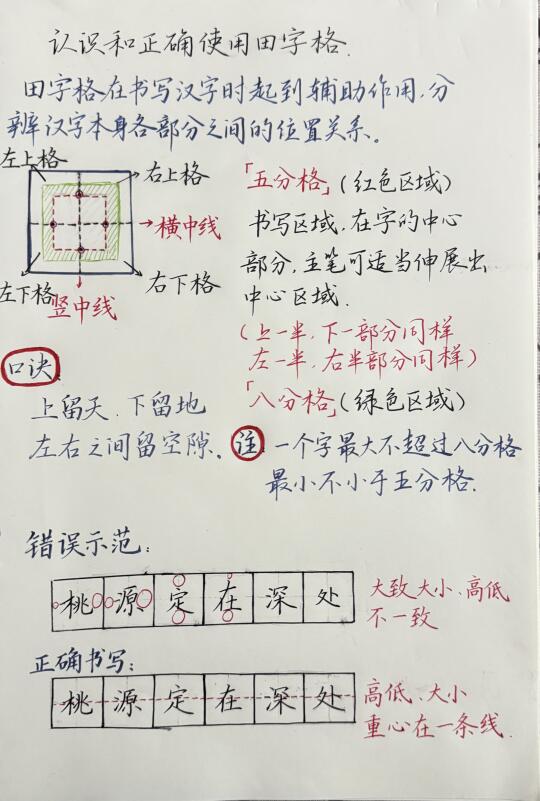 认识和正确使用田字格.
田字格在书写汉字时起到辅助作用,分
辨汉字本身各部分之间的位置关系。
左上格
右上格
横中线
左下格
右下格
竖中线
「五分格」(红色区域)
书写区域,在字的中心
部分,主笔可适当伸展出
中心区域.
(上一半,下一部分同样
左一半,右半部分同样)
「八分格」(绿色区域)
口诀
上留天、下留地
左右之间留空隙.
注 一个字最大不超过八分格
最小不小于五分格.
错误示范:
桃源定在深处
大致大小、高低
不一致
正确书写:
桃源定在深处
高低、大小
重心在一条线.